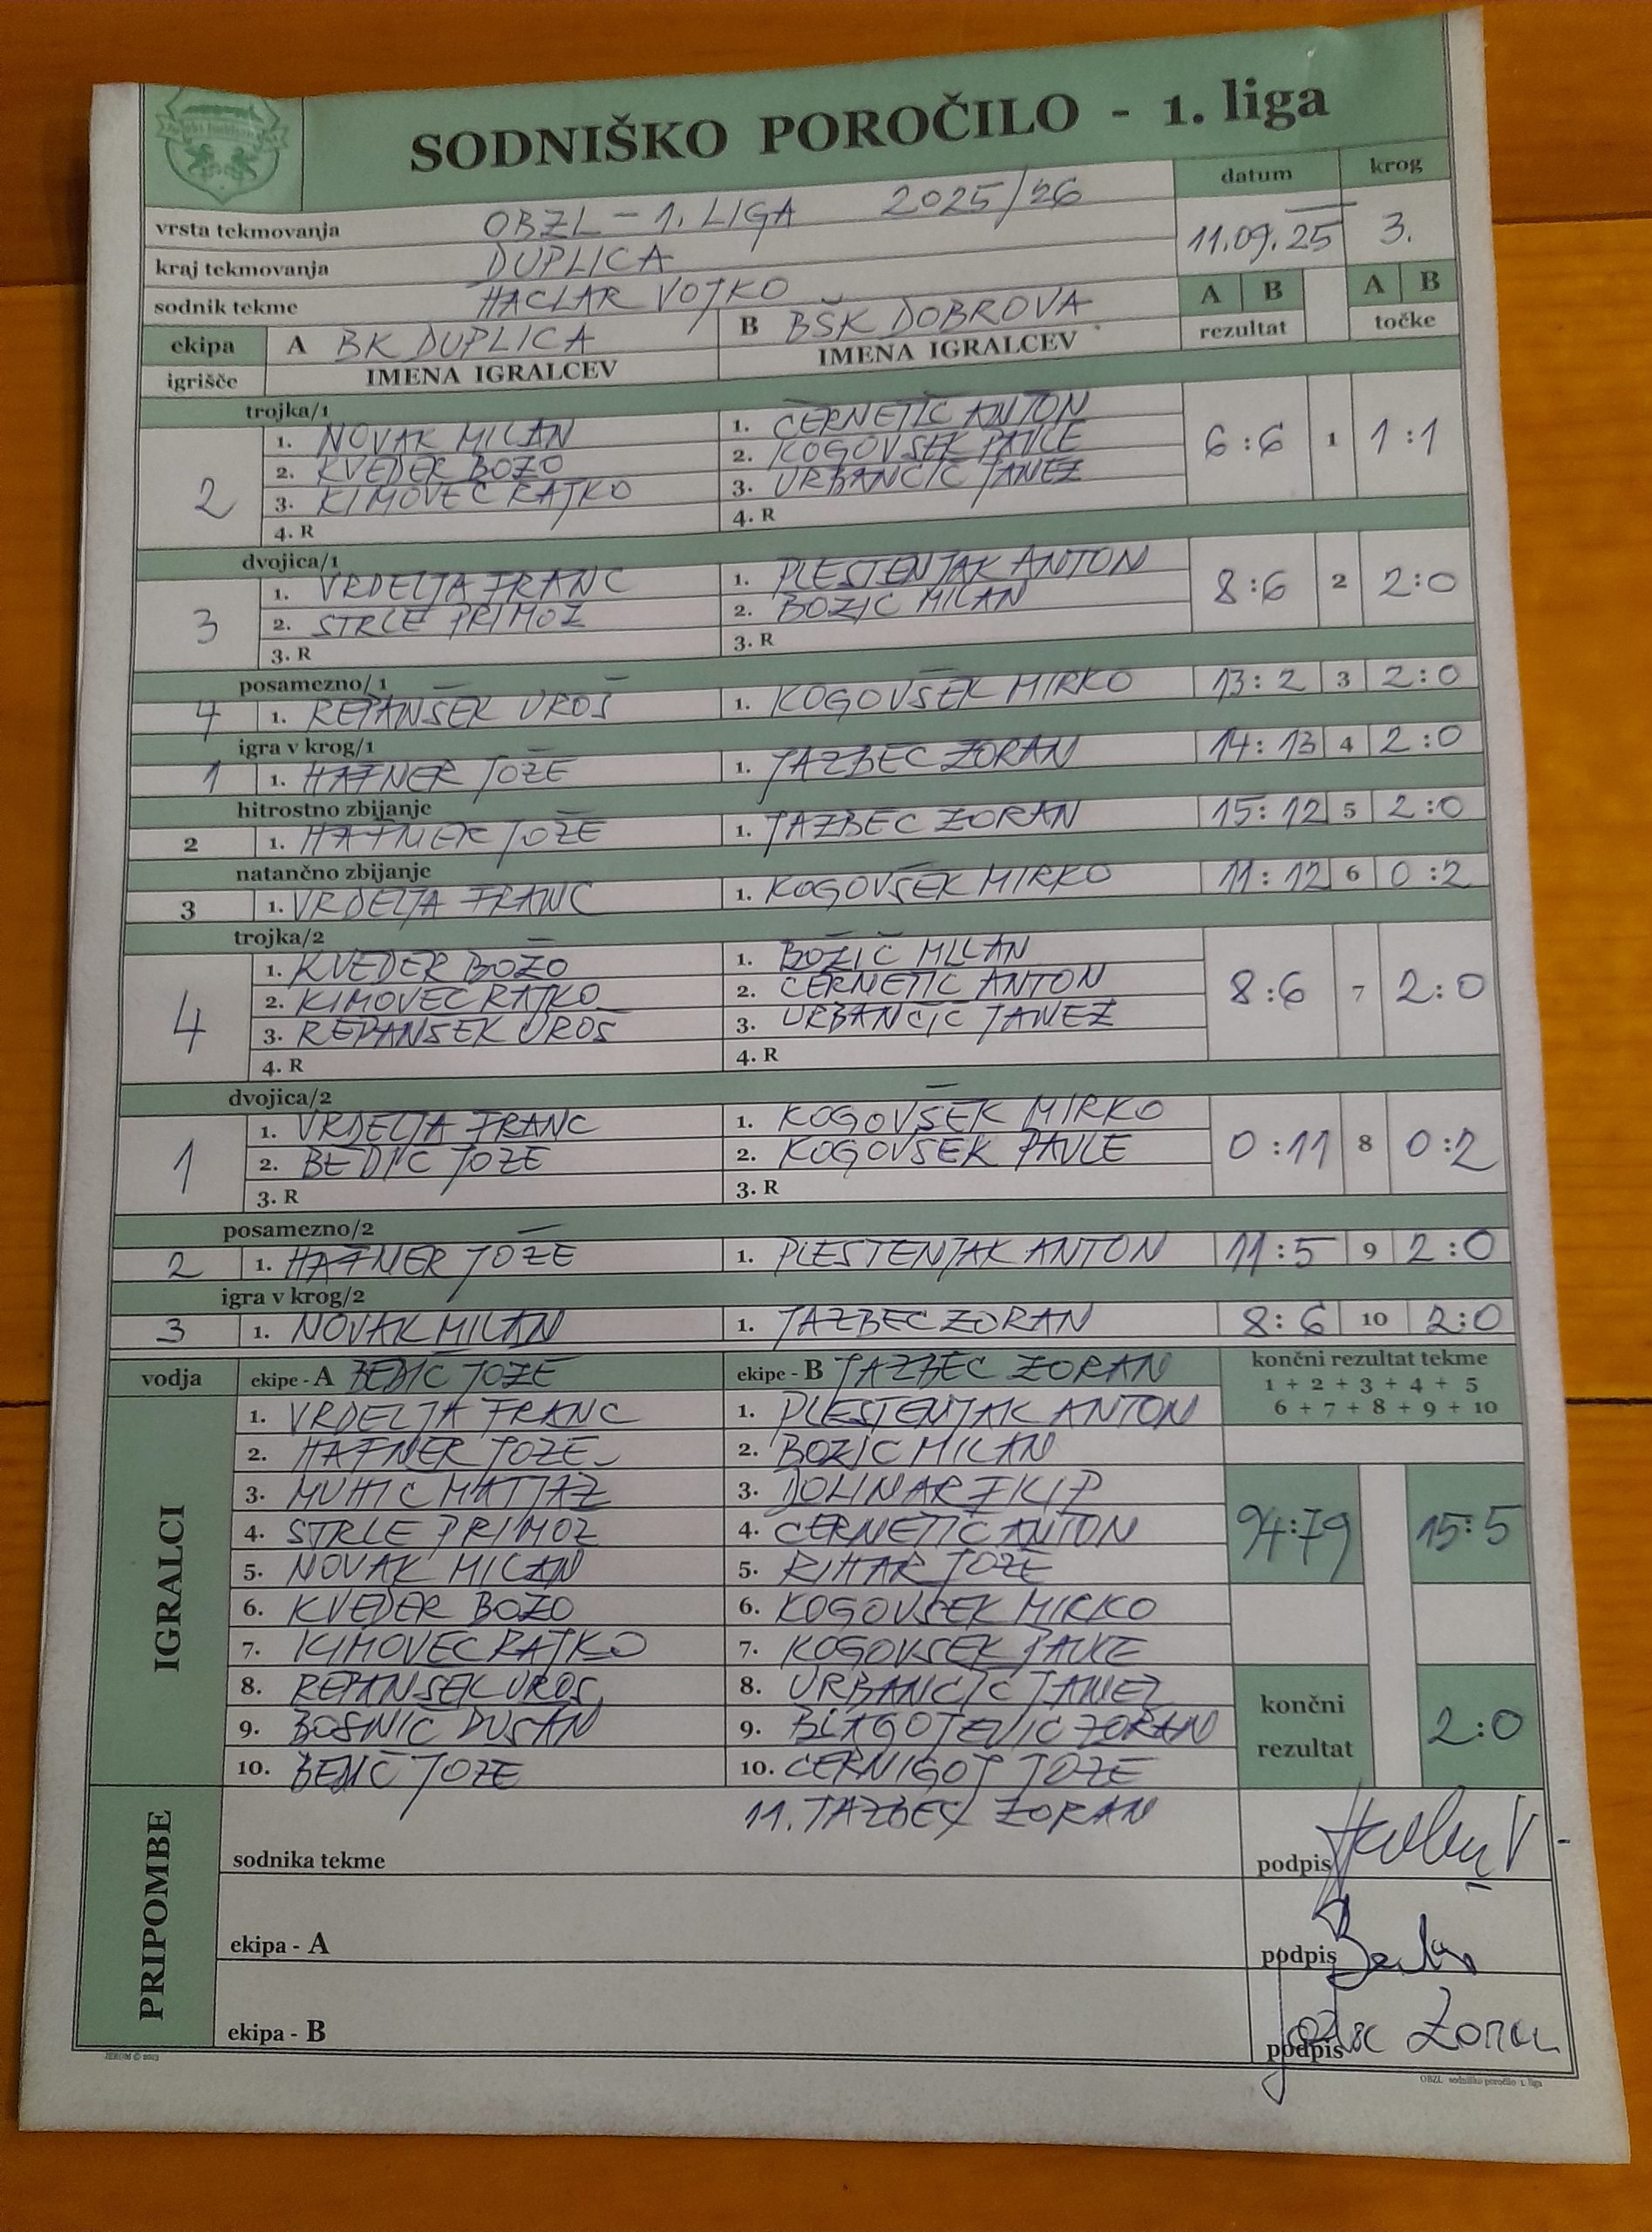 SODNIŠKO POROČILO - 1. liga
datum krog
vrsta tekmovanja OBZL - 1. LIGA 2025/26
11.09.25 3.
kraj tekmovanja DUPLICA
sodnik tekme HACLAR VOJKO
A B A B
rezultat točke
ekipa A BK DUPLICA B BŠK DOBROVA
igrišče IMENA IGRALCEV IMENA IGRALCEV
trojka/1
2 6:6 1 1:1
1. NOVAK MILAN 1. ČERNETIČ ANTON
2. KVEDER BOŽO 2. KOGOVŠEK PAVLE
3. KIMOVEC RAJKO 3. URBANČIČ JANEZ
4. R 4. R
dvojica/1
3 8:6 2 2:0
1. VRDELJA FRANC 1. PLESTENJAK ANTON
2. STRLE PRIMOŽ 2. BOŽIČ MILAN
3. R 3. R
posamezno/1
4 1. REPANŠEK UROŠ 1. KOGOVŠEK MIRKO 13:2 3 2:0
igra v krog/1
1 1. HAFNER JOŽE 1. JAZBEC ZORAN 14:13 4 2:0
hitrostno zbijanje
2 1. HAFNER JOŽE 1. JAZBEC ZORAN 15:12 5 2:0
natančno zbijanje
3 1. VRDELJA FRANC 1. KOGOVŠEK MIRKO 11:12 6 0:2
trojka/2
4 8:6 7 2:0
1. KVEDER BOŽO 1. BOŽIČ MILAN
2. KIMOVEC RAJKO 2. ČERNETIČ ANTON
3. REPANŠEK UROŠ 3. URBANČIČ JANEZ
4. R 4. R
dvojica/2
1 0:11 8 0:2
1. VRDELJA FRANC 1. KOGOVŠEK MIRKO
2. BEDIČ JOŽE 2. KOGOVŠEK PAVLE
3. R 3. R
posamezno/2
2 1. HAFNER JOŽE 1. PLESTENJAK ANTON 11:5 9 2:0
igra v krog/2
3 1. NOVAK MILAN 1. JAZBEC ZORAN 8:6 10 2:0
vodja ekipe - A BEDIČ JOŽE ekipe - B JAZBEC ZORAN
končni rezultat tekme
1 + 2 + 3 + 4 + 5
6 + 7 + 8 + 9 + 10
IGRALCI
1. VRDELJA FRANC 1. PLESTENJAK ANTON
2. HAFNER JOŽE 2. BOŽIČ MILAN
3. MUHIČ MATJAŽ 3. DOLINAR FILIP
4. STRLE PRIMOŽ 4. ČERNETIČ ANTON
94:79 15:5
5. NOVAK MILAN 5. RIHAR JOŽE
6. KVEDER BOŽO 6. KOGOVŠEK MIRKO
7. KIMOVEC RAJKO 7. KOGOVŠEK PAVLE
8. REPANŠEK UROŠ 8. URBANČIČ JANEZ
9. BOSNIČ DUŠAN 9. BLAGOJEVIČ ZORAN
končni rezultat 2:0
10. BEDIČ JOŽE 10. ČERNIGOJ JOŽE
11. JAZBEC ZORAN
PRIPOMBE
sodnika tekme podpis
ekipa - A podpis
ekipa - B podpis
OBZL sodniško poročilo 1. liga